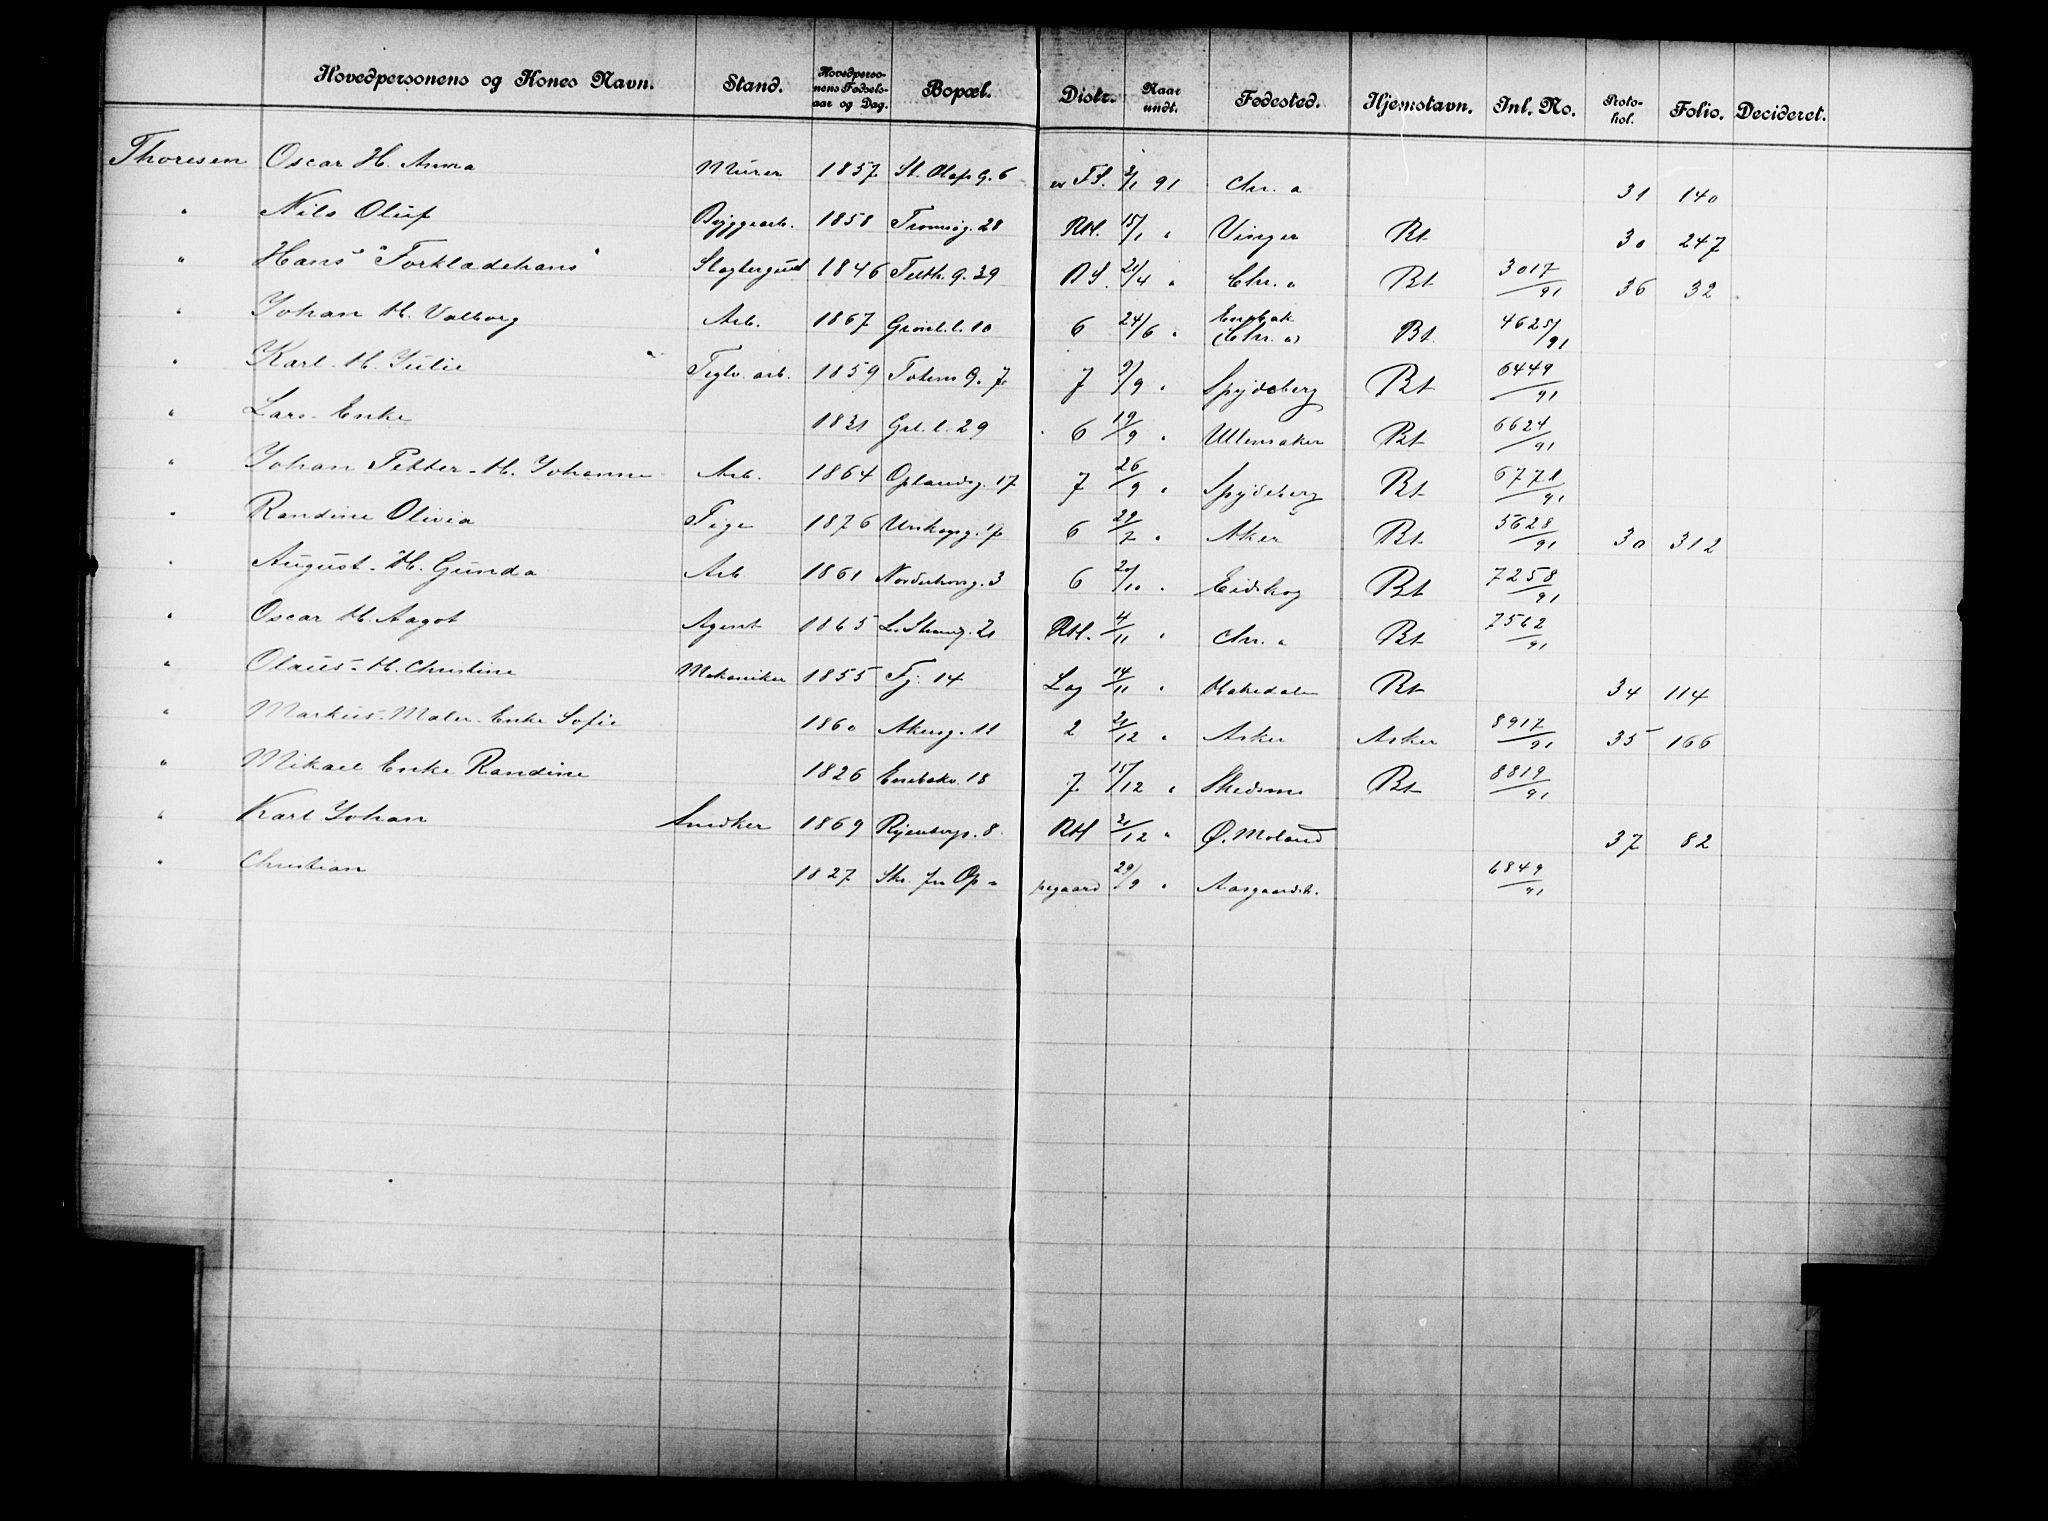 Hovedpersonens og Kones Navn. Stand. Hovedperso-nens Fødsels-aar og Dag. Bopæl. Distr. Naar undt. Fødested. Hjemstavn. Inl. No. Proto-kol. Folio. Decideret.
Thoresen Oscar H. Anna Murer 1857 St. Olafs G. 6 2/1 91 Chr. a 31 140
" Nils Oluf Byggearb. 1858 Tromsøg. 28 RM. 15/1 " Vinger Bt 30 247
" Hans "Forkladehans" Slagtergut 1846 Telth. G. 29 21/4 " Chr. a Bt 3017/91 36 32
" Johan H. Valborg Arb. 1867 Grønl. l. 10 6 24/6 " Enebak (Chr. a) Bt. 4625/91
" Karl H. Julie Teglv. arb. 1859 Totens G. 7 7 9/9 " Spydeberg Bt 6449/91
" Lars - Enke 1831 Grl. l. 29 6 19/9 " Ullensaker Bt 6624/91
" Johan Petter - H. Johanne Arb. 1864 Oplandsg. 17 7 26/9 " Spydeberg Bt 6771/91
" Randine Olivia Pige 1876 Urskogsg. 6 29/7 " Aker Bt 5628/91 30 312
" August - H. Gunda Arb 1861 Norderhovsg. 3 6 20/10 " Eidskog Bt 7258/91
" Oscar H. Aagot Agent 1865 L. Strandg. 21 RM. 4/11 " Chr. a Bt 7562/91
" Olaus - H. Christine Mekaniker 1855 Fj. 14 Log 14/11 " Hakedalen Bt 34 114
" Markus - Maler - Enke Sofie 1860 Akersg. 11 2 21/12 " Asker Asker 8917/91 35 166
" Mikael Enke Randine 1826 Enebakv. 18 7 15/12 " Skedsmo Bt 8819/91
" Karl Johan Snedker 1869 Ryenbergs. 8 RM 21/12 " Ø. Moland 37 82
" Christian 1827 Skr. fra Op- pegaard 29/9 " Aasgaardst. 6849/91